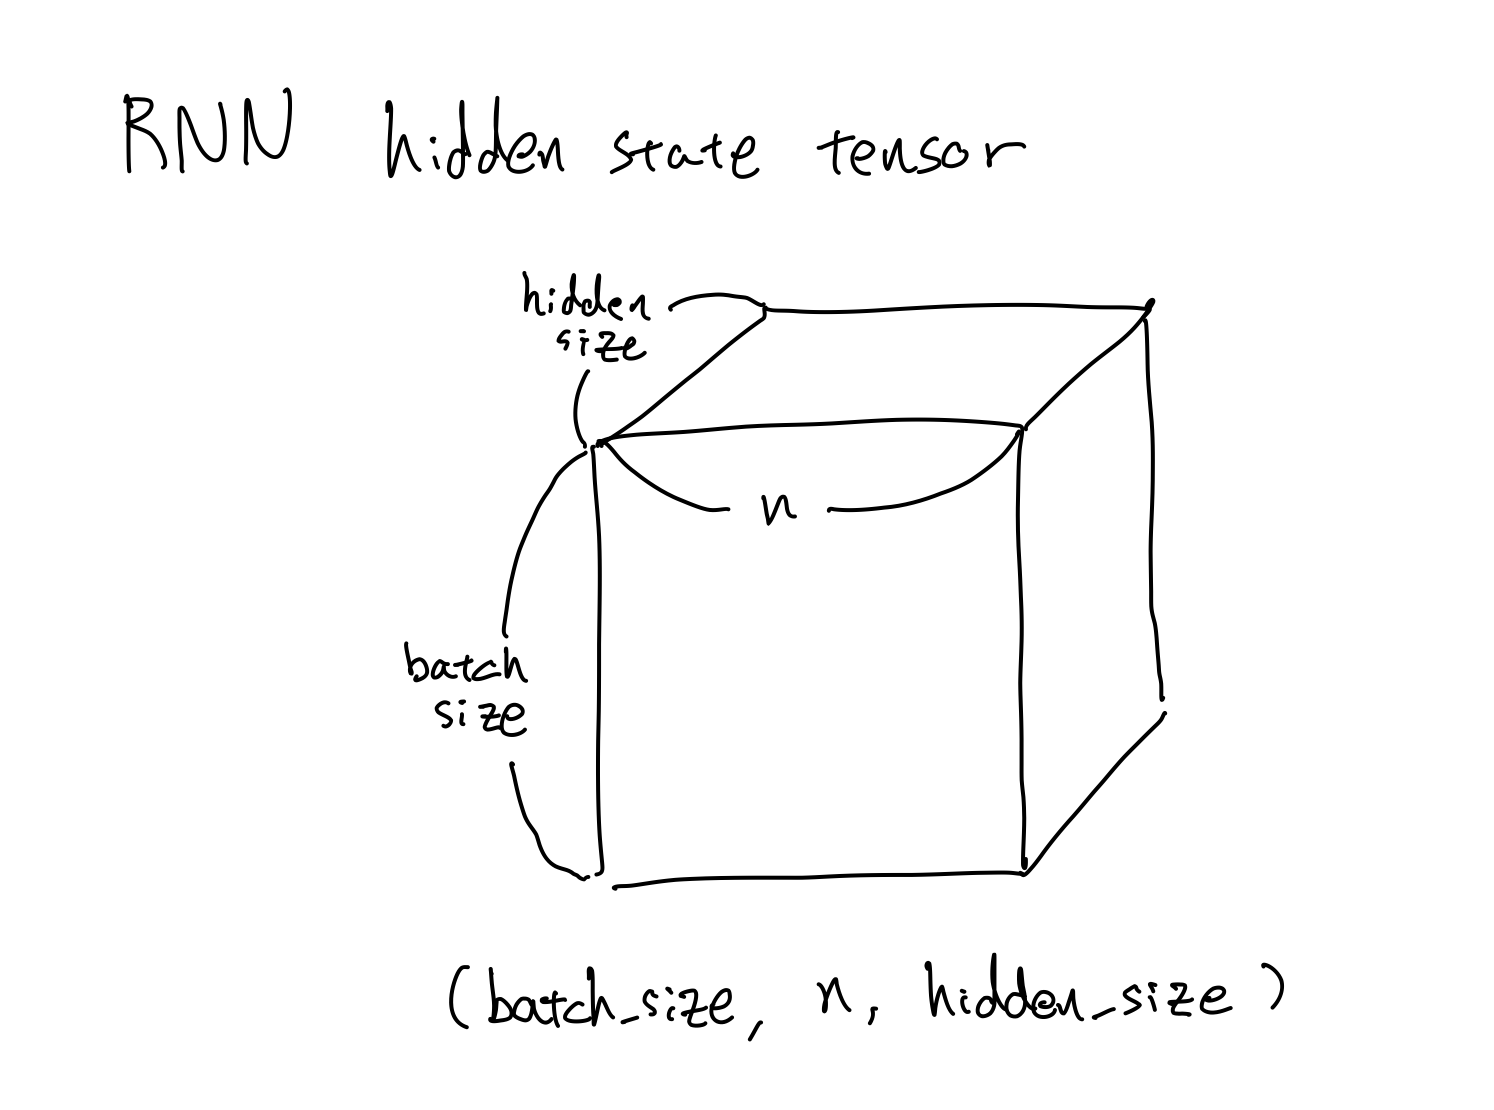 RNN hidden state tensor
hidden
size
n
batch
size
(batch_size, n, hidden_size)